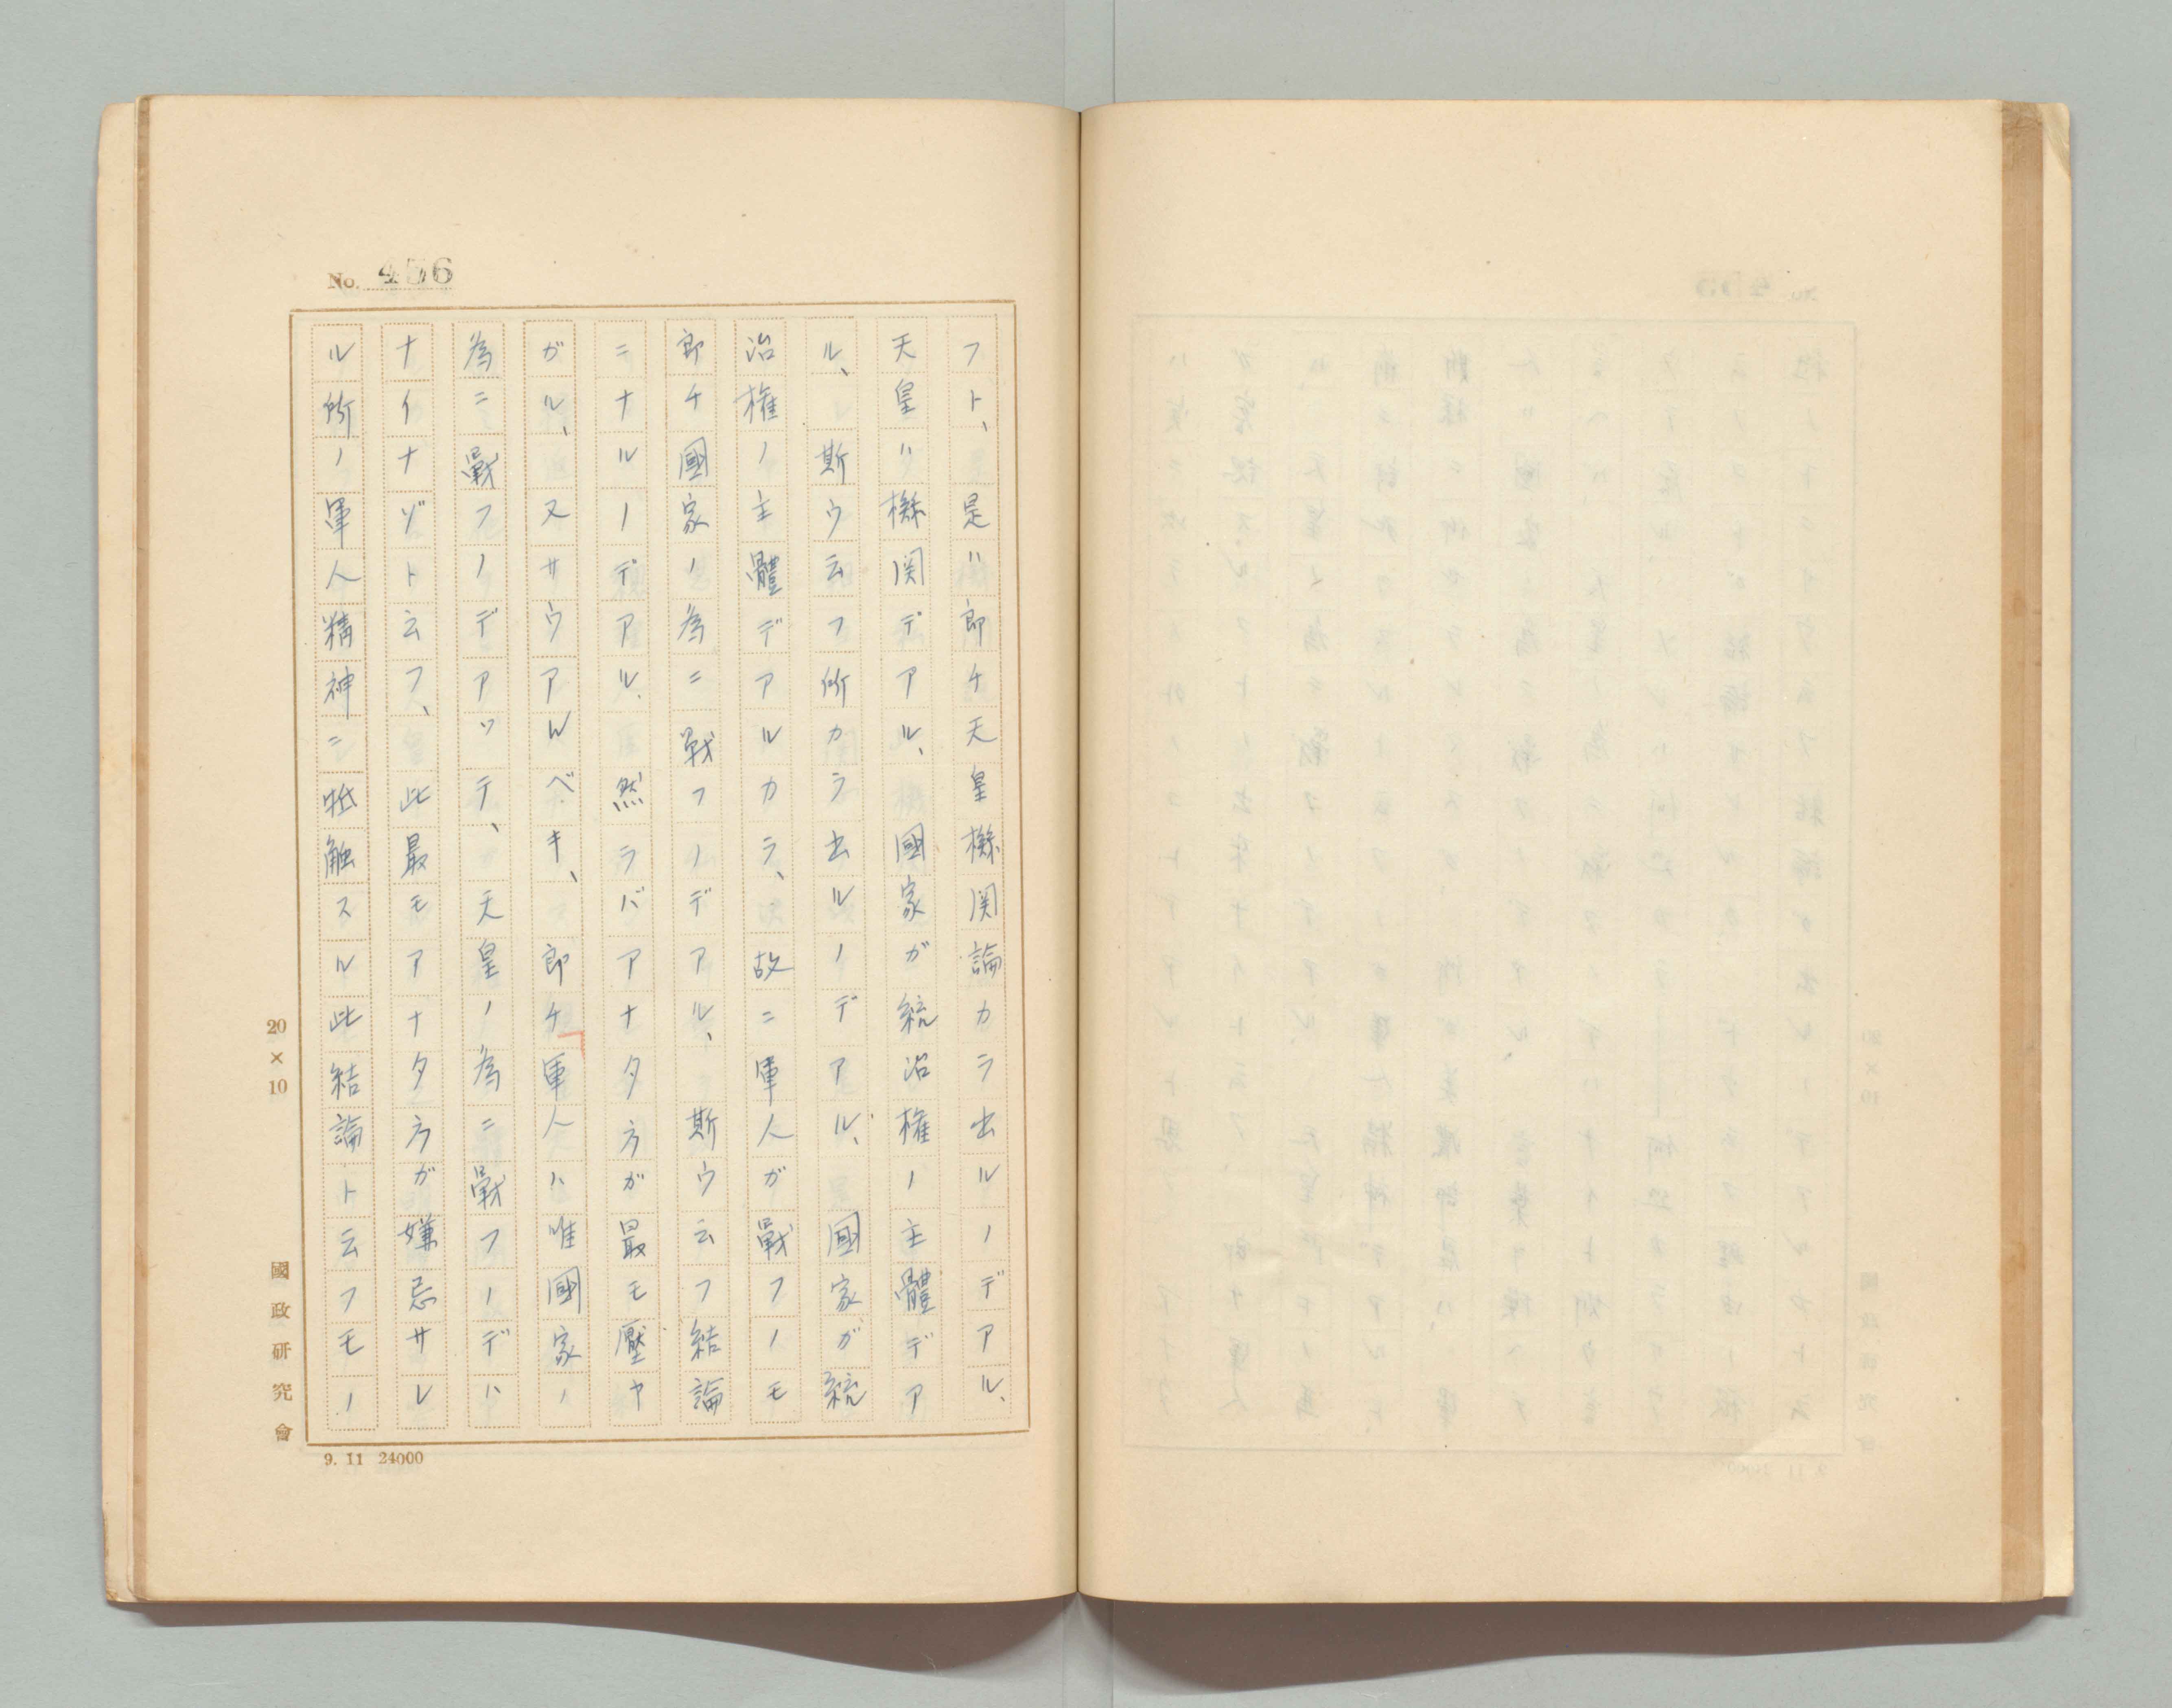 No. 456
フト、是ハ即チ天皇機関論カラ出ルノデアル、
天皇ハ機関デアル、國家ガ統治権ノ主體デア
ル、斯ウ云フ所カラ出ルノデアル、國家ガ統
治権ノ主體デアルカラ、故ニ軍人ガ戰フノモ
即チ國家ノ為ニ戰フノデアル、斯ウ云フ結論
ニナルノデアル、然ラバアナタ方ガ最モ壓ヤ
ガル、又サウアルベキ、即チ軍人ハ唯國家ノ
為ニ戰フノデアッテ、天皇ノ為ニ戰フノデハ
ナイナゾト云フ、此最モアナタ方ガ嫌忌サレ
ル所ノ軍人精神ニ牴触スル此結論ト云フモノ
20×10
國政研究會
9. 11 24000